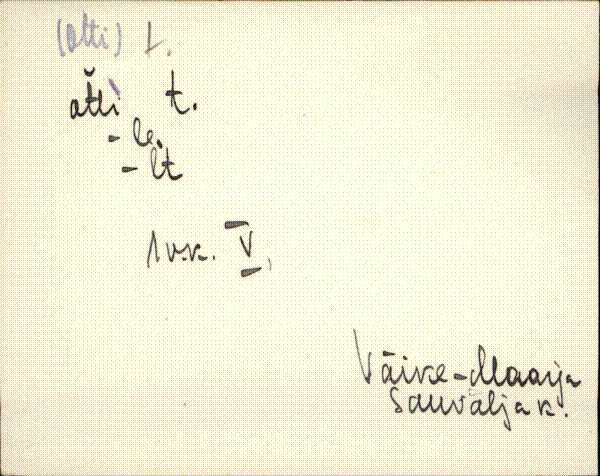 (Otti) t.
ot̆ti t.
-le.
-lt
1 v.k. V.
Väike-Maarja
Sauvälja k.